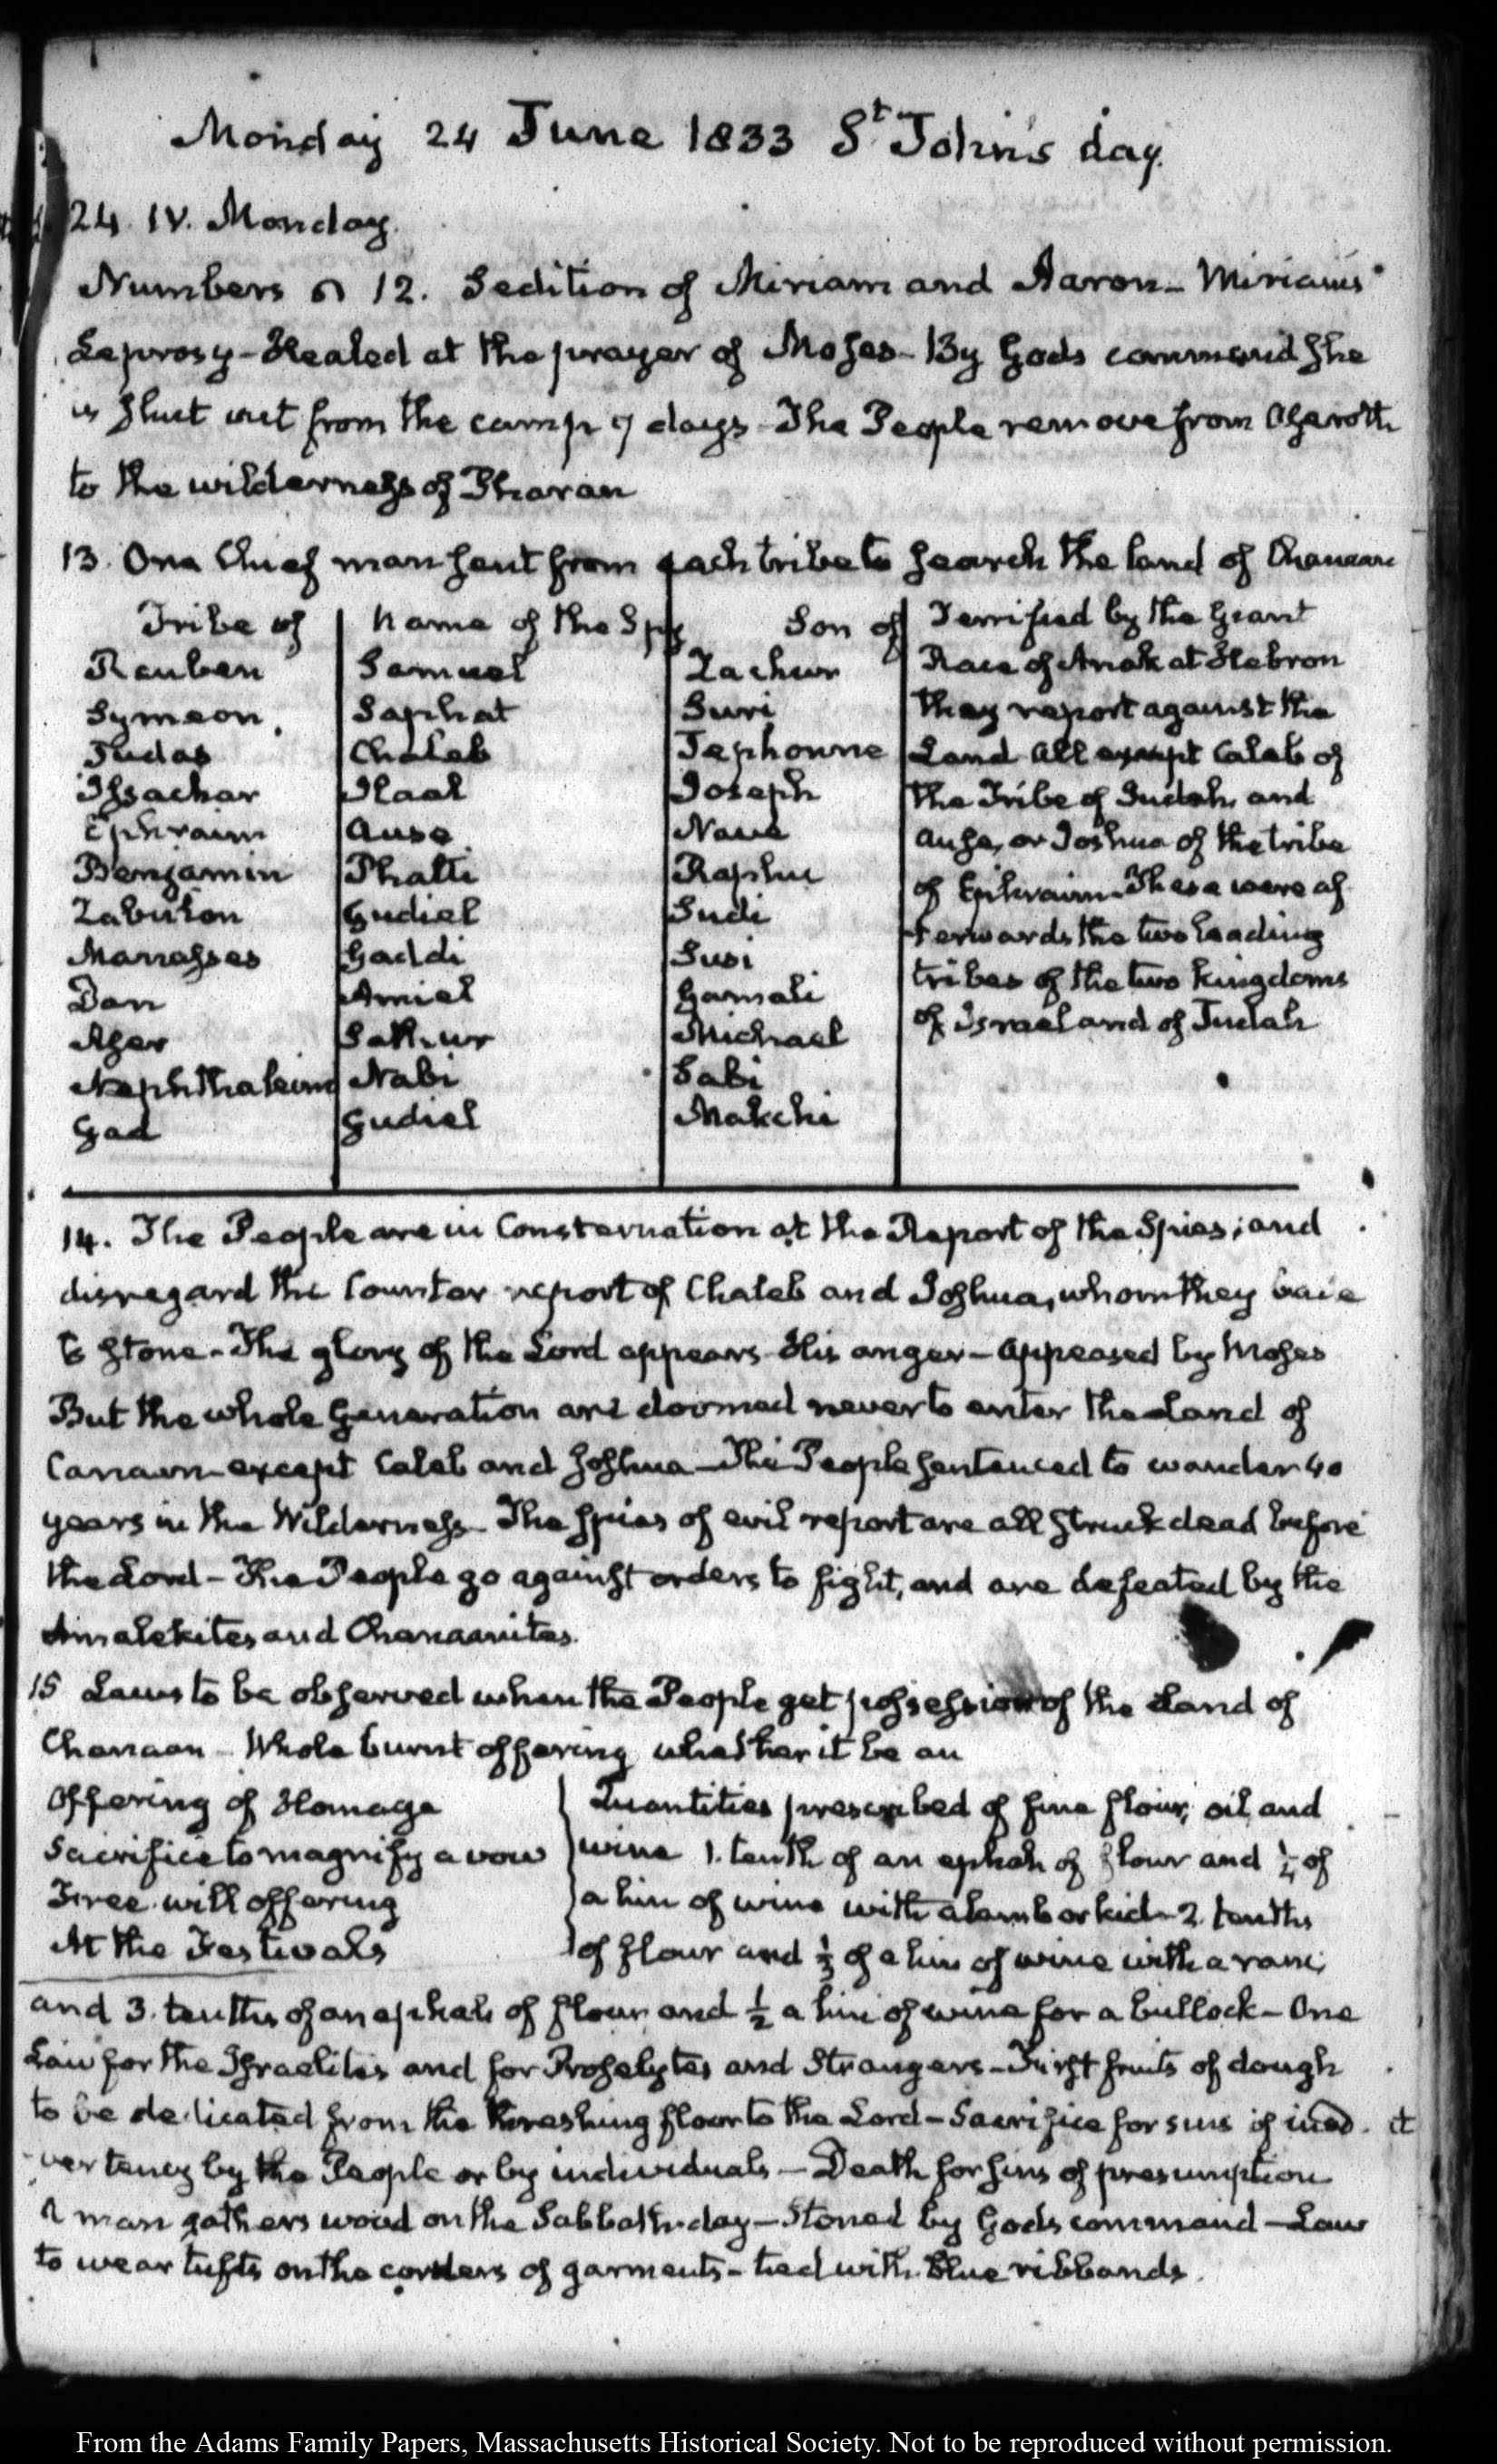 Monday 24 June 1833 St John's day.
24. IV. Monday.
Numbers 12. Sedition of Miriam and Aaron - Miriam's
Leprosy - Healed at the prayer of Moses - By Gods command she
is shut out from the camp 7 days - The People remove from Aseroth
to the wilderness of Pharan
13. One Chief man sent from each tribe to search the land of Chanaan
Tribe of | Name of the Spy | Son of
Reuben | Samuel | Zachur
Symeon | Saphat | Suri
Judas | Chaleb | Jephonne
Issachar | Ilaal | Joseph
Ephraim | Ause | Naue
Benjamin | Phalti | Raphu
Zabulon | Gudiel | Sudi
Manasses | Gaddi | Susi
Dan | Amiel | Gamali
Aser | Sathur | Michael
Nephthaleim | Nabi | Sabi
Gad | Gudiel | Makchi
Terrified by the Giant
Race of Anak at Hebron
they report against the
Land all except Caleb of
the Tribe of Judah, and
Ause, or Joshua of the tribe
of Ephraim - These were af
terwards the two leading
tribes of the two kingdoms
of Israel and of Judah
14. The People are in Consternation at the Report of the Spies; and
disregard the Counter report of Chaleb and Joshua, whom they
to stone - The glory of the Lord appears - His anger - appeased by Moses
But the whole Generation are doomed never to enter the Land of
Canaan - except Caleb and Joshua - The People sentenced to wander 40
years in the Wilderness - The spies of evil report are all struck dead before
the Lord - The People go against orders to fight, and are defeated by the
Amalekites and Chanaanites.
15 Laws to be observed when the People get possession of the Land of
Chanaan - Whole burnt offering whether it be an
Offering of Homage
Sacrifice to magnify a vow
Free will offering
At the Festivals
Quantities prescribed of fine flour, oil, and
wine 1. tenth of an ephah of flour and 1/4 of
a hin of wine with a lamb or kid - 2. tenths
of flour and 1/3 of a hin of wine with a ram,
and 3. tenths of an ephah of flour and 1/2 a hin of wine for a bullock - One
Law for the Israelites and for Proselytes and Strangers - First fruits of dough
to be dedicated from the threshing floor to the Lord - Sacrifice for sins of inad
vertency by the People or by individuals - Death for sins of presumption
A man gathers wood on the Sabbath day - Stoned by Gods command - Law
to wear tufts on the corners of garments - tied with blue ribbands.
From the Adams Family Papers, Massachusetts Historical Society. Not to be reproduced without permission.